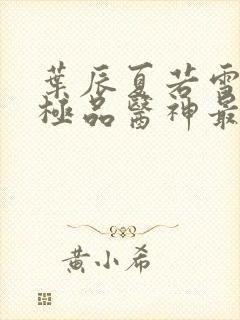 葉辰夏若雪
極品醫神最
黄小希